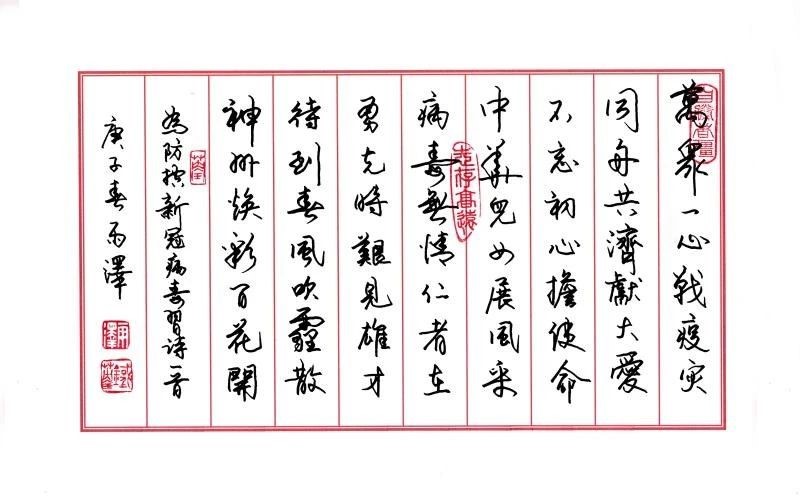 萬眾一心戰疫灾
同舟共濟獻大愛
不忘初心擔使命
中華兒女展風采
病毒無情仁者在
勇克時艱見雄才
待到春風吹霾散
神州煥彩百花開
為防控新冠病毒習詩一首
庚子春雨澤
志存高遠